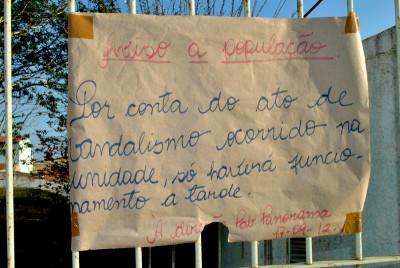 Aviso a população
Por conta do ato de
vandalismo ocorrido na
unidade, só haverá funcio-
namento a tarde.
A dire Panorama
17-09-12